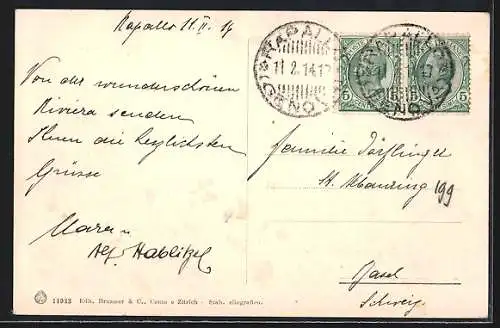 Rapallo 11.II.14
Von der wunderschönen
Riviera senden
Ihnen die herzlichsten
Grüsse
Alf. Hablützel
RAPALLO
11.2.14.17
GENOVA
5
5
Familie Dörflinger
St.
199
Basel
Schweiz
11013 Edit. Brunner & C., Como e Zürich - Stab. eliografico.